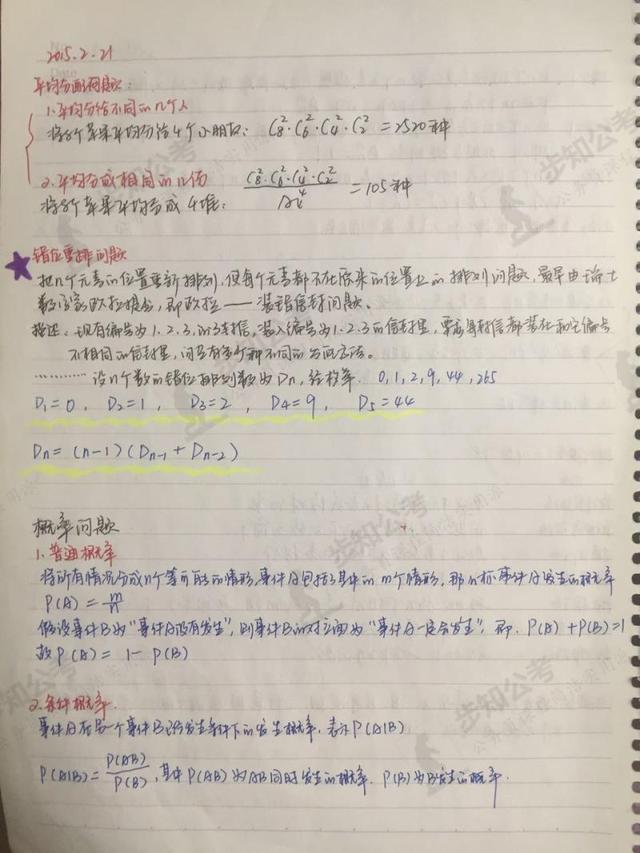 2015.2.21
平均分配问题:
1.平均分给不同的n个人
将8个苹果平均分给4个小朋友: C₈²·C₆²·C₄²·C₂² = 2520 种
2.平均分成相同的n份
将8个苹果平均分成4堆: C₈²·C₆²·C₄²·C₂² / A₄⁴ = 105 种
错位重排问题
把n个元素的位置重新排列,使每个元素都不在原来的位置上的排列问题,最早由瑞士
数学家欧拉提出,即欧拉——装错信封问题。
描述:现有编号为1.2.3.的3封信,装入编号为1.2.3的信封里,要求每封信都装在和它编号
不相同的信封里,问共有多少种不同的方法。
………… 设n个数的错位排列数为Dn, 0,1,2,9,44,265
D₁=0, D₂=1, D₃=2, D₄=9, D₅=44
Dn=(n-1)(Dn-1+Dn-2)
概率问题
1.普通概率
将所有情况分成n个等可能的情形,事件A包括了其中的m个情形,那么称事件A发生的概率
P(A)=m/n
假设事件B为“事件A没有发生”,则事件B的对立面为“事件A一定会发生”,即.P(A)+P(B)=1
故P(A)=1-P(B)
2.条件概率.
事件A在另一个事件B已经发生条件下的发生概率.表示P(A|B)
P(A|B)=P(AB)/P(B),其中P(AB)为AB同时发生的概率.P(B)为B发生的概率.
步知公考
步知公考